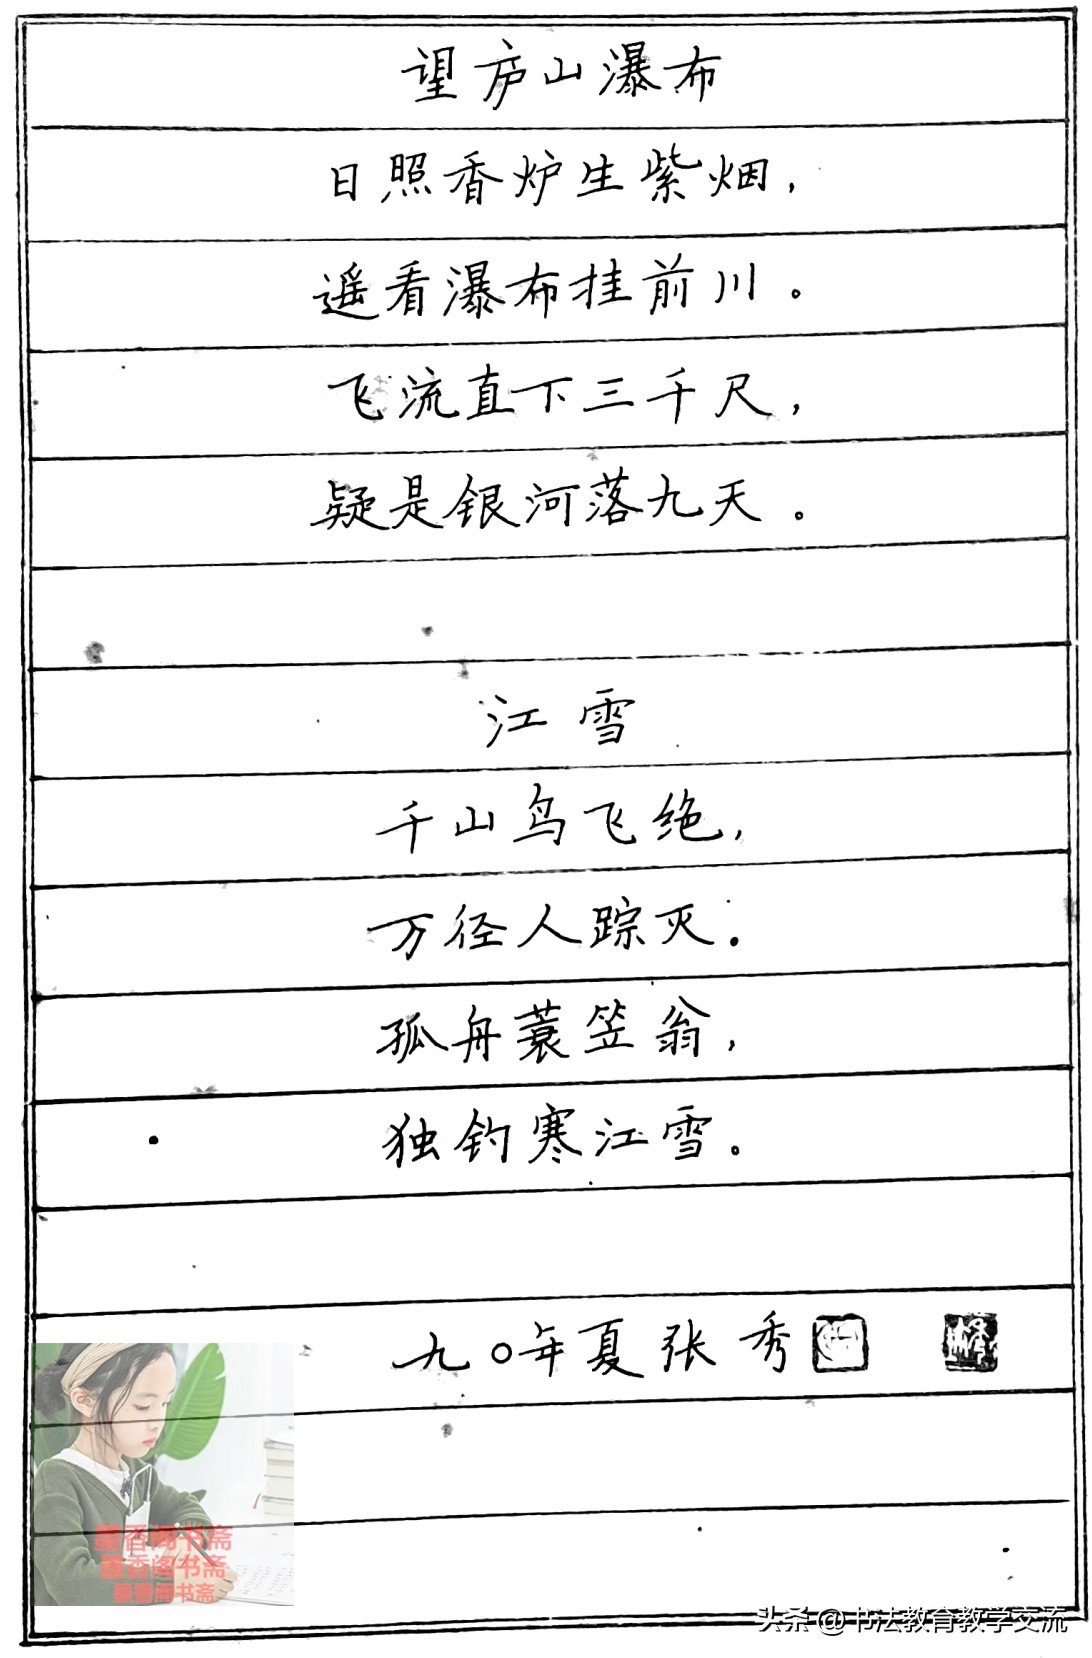 望庐山瀑布
日照香炉生紫烟，
遥看瀑布挂前川。
飞流直下三千尺，
疑是银河落九天。
江雪
千山鸟飞绝，
万径人踪灭.
孤舟蓑笠翁，
独钓寒江雪。
九〇年夏张秀
墨香阁书斋
墨香阁书斋
墨香阁书斋
头条 @书法教育教学交流